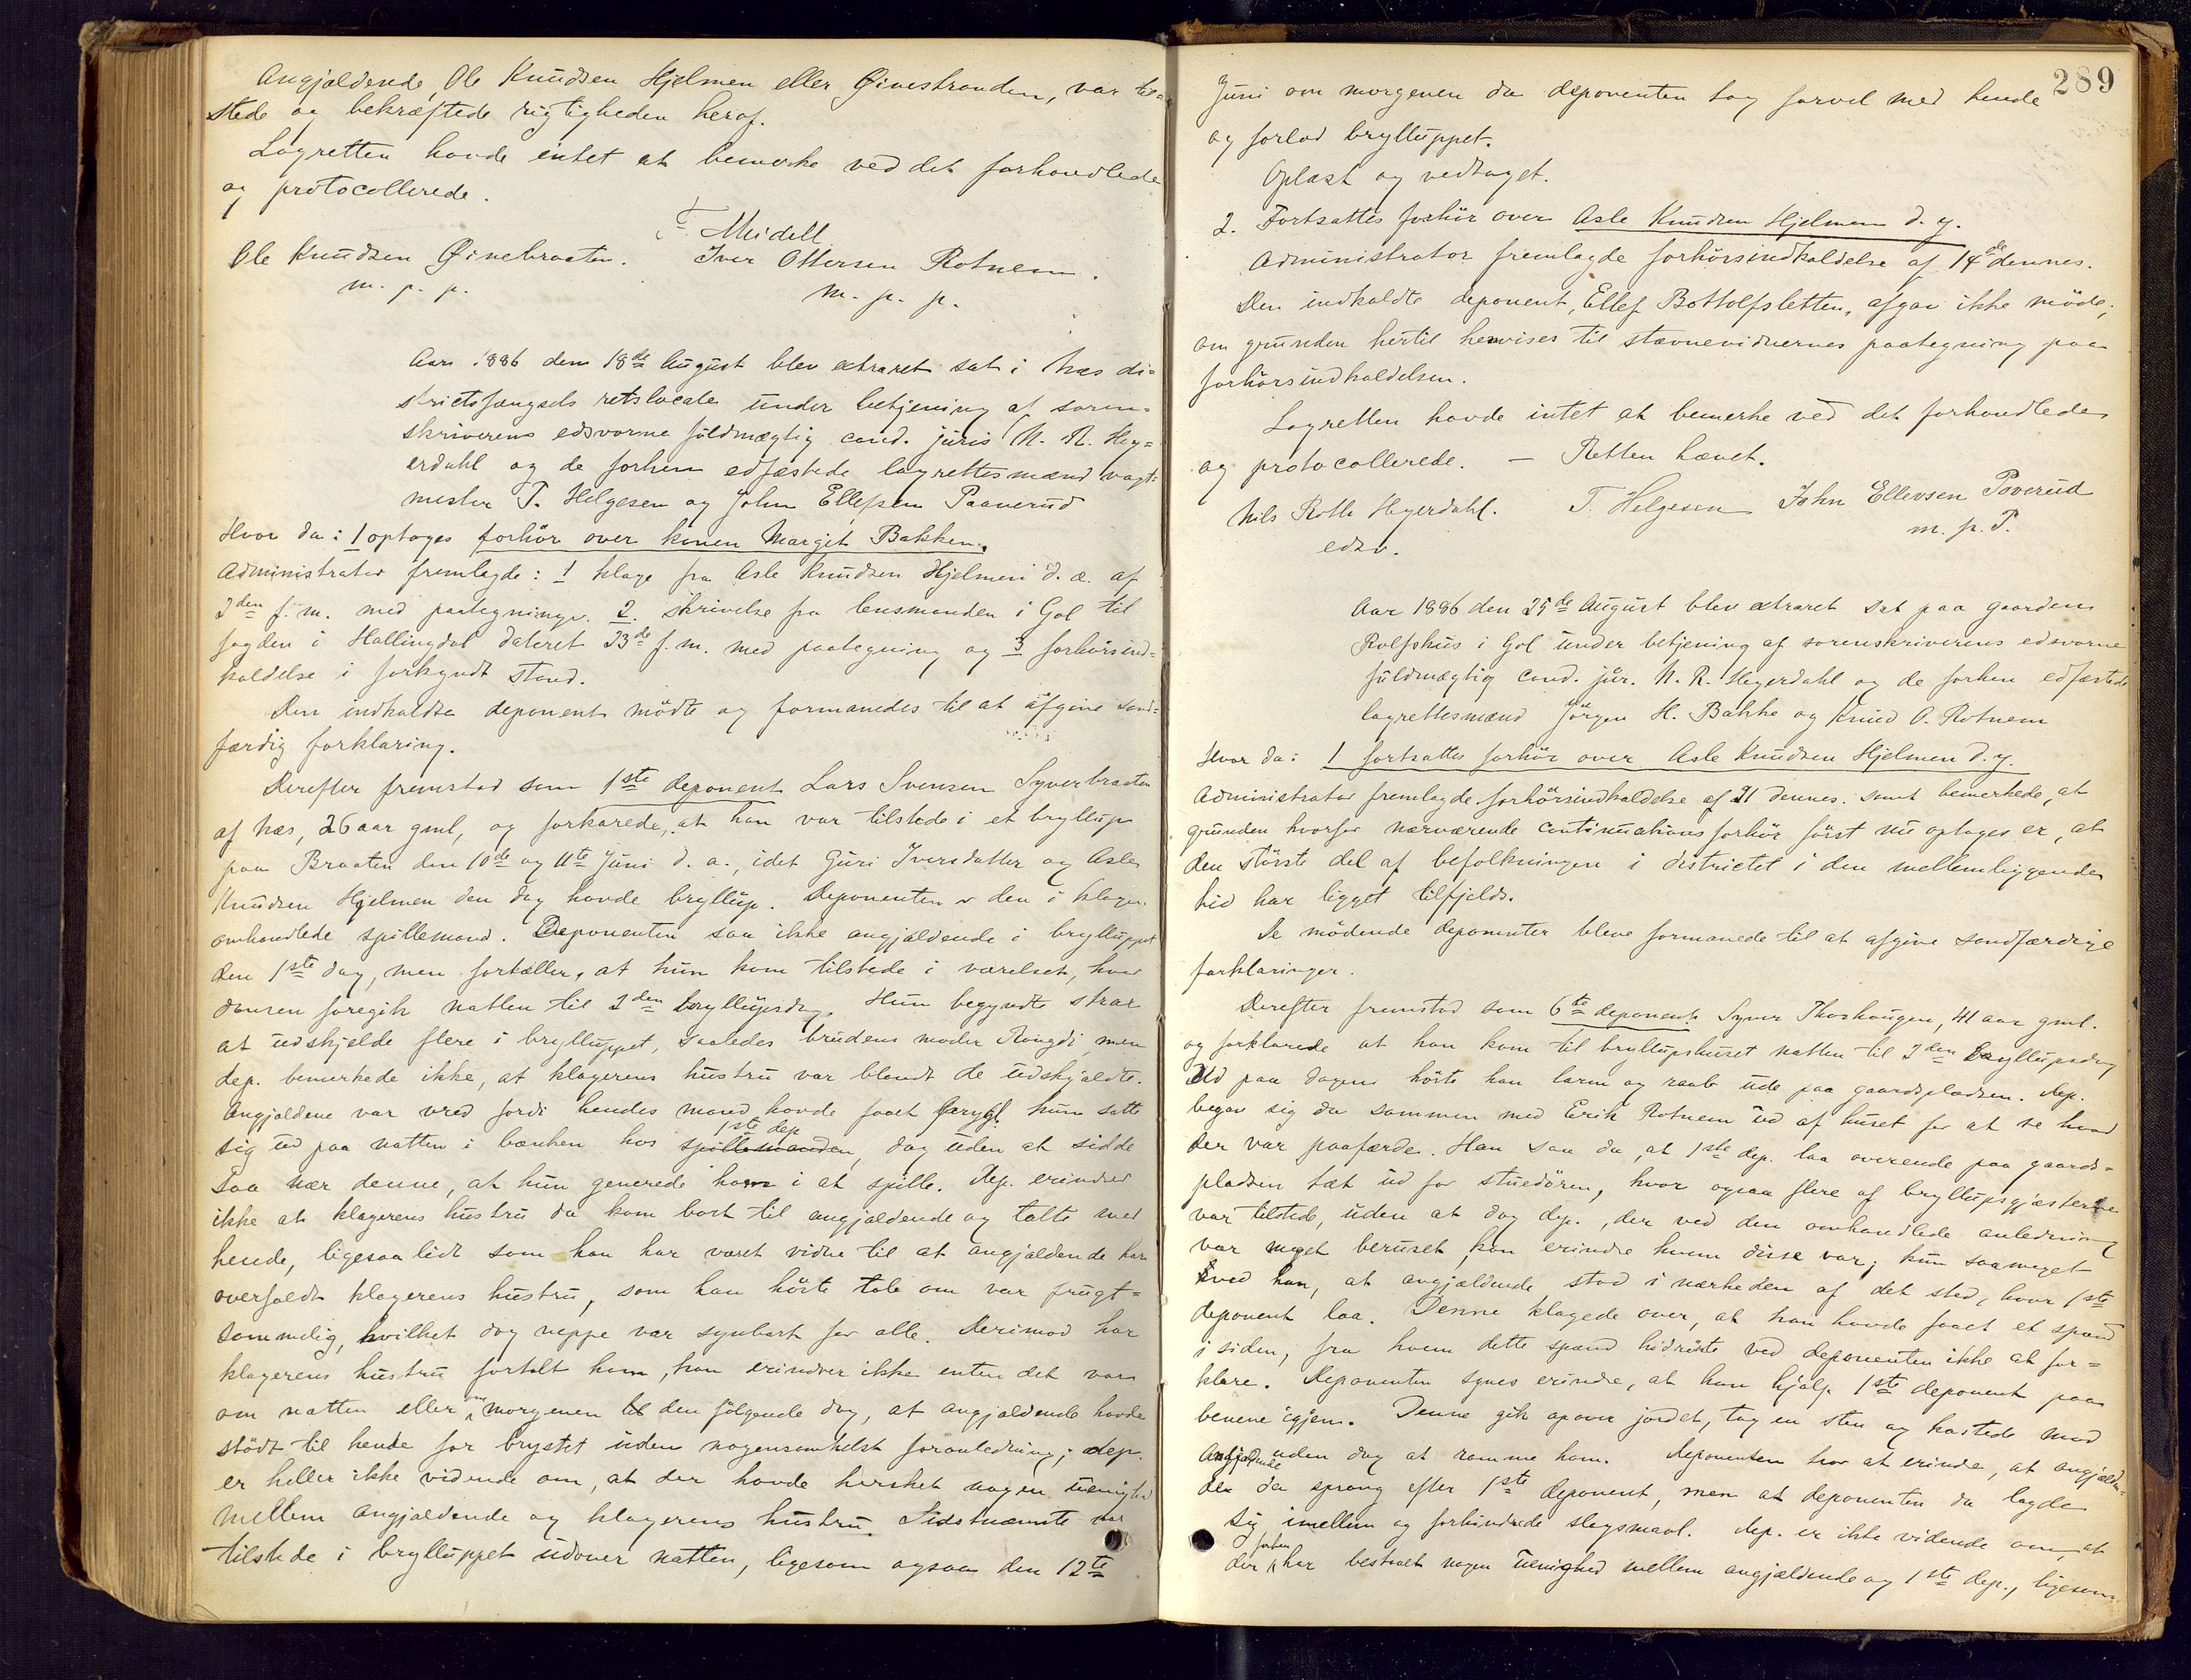 Angjældende, Ole Knudsen Hjelmen eller Øinestranden, var til=
stede og bekræftede rigtigheden heraf.
Lagretten havde intet at bemerke ved det forhandlede
og protocollerede.
F. Meidell
Ole Knudsen Øinebraaten. Iver Ottersen Rotnem.
m. p. p. m. p. p.
Aar 1886 den 18de August blev extraret sat i Næs di=
strictsfængsels retslocale under betjening af soren=
skriverens edsvorne fuldmægtig cand. juris N. R. Hey=
erdahl og de forhen edfæstede lagrettesmænd vagt=
mester T. Helgesen og John Ellefsen Paaverud
Hvor da: 1 optoges forhör over konen Margit Bakken.
Administrator fremlagde: 1 klage fra Asle Knudsen Hjelmen d. æ. af
2den f. m. med paategninger. 2. skrivelse fra lensmanden i Gol til
fogden i Hallingdal dateret 23de f. m. med paategning og 3 forhörsind=
kaldelse i forkyndt stand.
Den indkaldte deponent mödte og formanedes til at afgive sand=
færdig forklaring.
Derefter fremstod som 1ste deponent Lars Svensen Syverbraaten
af Næs, 26 aar gml, og forkarede, at han var tilstede i et bryllup
paa Braaten den 10de og 11te Juni d. a., idet Guri Iversdatter og Asle
Knudsen Hjelmen den dag havde bryllup. Deponenten er den i klagen
omhandlede spillemand. Deponenten saa ikke angjældende i brylluppet
den 1ste dag, men fortæller, at hun kom tilstede i værelset, hvor
dansen foregik natten til 2den bryllupsdag. Hun begyndte strax
at udskjelde flere i brylluppet, saaledes brudens moder Rangdi, men
dep. bemerkede ikke, at klagerens hustru var blandt de udskjældte.
Angjældene var vred fordi hendes mand havde faaet prygl. hun satte
1ste dep
sig ud paa natten i bænken hos spillemanden, dog uden at sidde
saa nær denne, at hun generede ham i at spille. Dep. erindrer
ikke at klagerens hustru da kom bort til angjældende og talte med
hende, ligesaalidt som han har været vidne til at angjældende har
overfaldt klagerens hustru, som han hörte tale om var frugt=
sommelig, hvilket dog neppe var synbart for alle. Derimod har
klagerens hustru fortalt ham, han erindrer ikke enten det var
om natten eller om morgenen til den fölgende dag, at angjældende havde
stödt til hende for brystet uden nogensomhelst foranledning; dep.
er heller ikke vidende om, at der havde hersket nogen uenighed
mellem angjældende og klagerens hustru. Sidstnævnte var
tilstede i brylluppet udover natten, ligesom ogsaa den 12te
289
Juni om morgenen da deponenten tog farvel med hende
og forlod brylluppet.
Oplæst og vedtaget.
2. Fortsattes forhör over Asle Knudsen Hjelmen d. y.
Administrator fremlagde forhörsindkaldelse af 14de dennes.
Den indkaldte deponent, Ellef Bottolfsletten, afgav ikke möde;
om grunden hertil henvises til stævnevidnernes paategning paa
forhörsindkaldelsen.
Lagretten havde intet at bemerke ved det forhandlede
og protocollerede. — Retten hævet.
Nils Roth Heyerdahl. T. Helgesen John Ellevsen Poverud
edsv. m. p. P.
Aar 1886 den 25de August blev extraret sat paa gaarden
Rolfshus i Gol under betjening af sorenskriverens edsvorne
fuldmægtig cand. jur. N. R. Heyerdahl og de forhen edfæstede
lagrettesmænd Jörgen H. Bakke og Knud O. Rotnem
Hvor da: 1 fortsattes forhör over Asle Knudsen Hjelmen d. y.
Administrator fremlagde forhörsindkaldelse af 21 dennes. samt bemerkede, at
grunden hvorfor nærværende continuationsforhör först nu optages er, at
den störste del af befolkningen i districtet i den mellemliggende
tid har ligget tilfjelds.
De mödende deponenter bleve formanede til at afgive sandfærdige
forklaringer.
Derefter fremstod som 6te deponent Syver Thorhaugen, 41 aar gml.
og forklarede at han kom til bryllupshuset natten til 2den Bryllupsdag
Ud paa dagen hörte han larm og raab ude paa gaardspladsen. Dep.
begav sig da sammen med Erik Rotnem ud af huset for at se hvad
der var paafærde. Han saa da, at 1ste dep. laa overende paa gaards=
pladsen tæt ud for stuedören, hvor ogsaa flere af bryllupsgjæsterne
var tilstede, uden at dog dep., der ved den omhandlede anledning
var meget beruset, kan erindre hvem disse var; kun saameget
ved han, at angjældende stod i nærheden af det sted, hvor 1ste
deponent laa. Denne klagede over, at han havde faaet et spænd
i siden, fra hvem dette spænd hidrörte ved deponenten ikke at for=
klare. Deponenten synes erindre, at han hjalp 1ste deponent paa
benene igjen. Denne gik op over jordet, tog en sten og kastede mod
Angjældende uden dog at ramme ham. Deponenten tror at erindre, at angjælden=
de da sprang efter 1ste deponent, men at deponenten da lagde
sig imellem og forhindrede slagsmaal. Dep. er ikke vidende om, at
der forhen har bestaaet nogen uenighed mellem angjældende og 1ste dep., ligesom